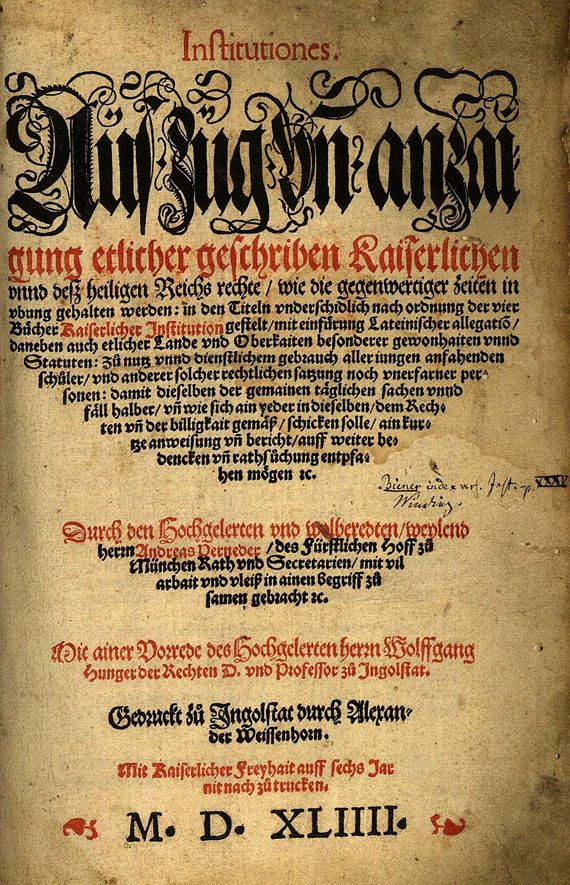 Institutiones.
Auſzug vñ anzai
gung etlicher geſchriben Kaiſerlichen
vnnd deſz heiligen Reichs rechte / wie die gegenwertiger zeiten in
vbung gehalten werden: in den Titeln vnderſchidlich nach ordnung der vier
Bücher Kaiſerlicher Inſtitution geſtelt / mit einfürung Lateiniſcher allegatiõ /
daneben auch etlicher Lande vnd Oberkaiten beſonderer gewonhaiten vnnd
Statuten: Zů nutz vnnd dienſtlichem gebrauch aller iungen anfahenden
ſchüler / vnd anderer ſolcher rechtlichen ſatzung noch vnerfarner per⸗
ſonen: damit dieſelben der gemainen täglichen ſachen vnnd
fäll halber / vñ wie ſich ain yeder in dieſelben / dem Rech⸗
ten vñ der billigkait gemäß / ſchicken ſolle / ain kur⸗
tze anweiſung vñ bericht / auff weiter be⸗
dencken vñ rathſůchung entpfa⸗
hen mögen ꝛc.
Biener index
XXXI
Durch den Hochgelerten vnd wolberedten / weylend
herrn Andreas Perneder / des Fürſtlichen Hoff zů
München Rath vnd Secretarien / mit vil
arbait vnd vleiß in ainen begriff zů
ſamen gebracht ꝛc.
Mit ainer Vorrede des Hochgelerten herrn Wolffgang
Hunger der Rechten D. vnd Profeſſor zů Ingolſtat.
Gedruckt zů Ingolſtat durch Alexan⸗
der Weiſſenhorn.
Mit Kaiſerlicher Freyhait auff ſechs Jar
nit nach zů trucken.
M. D. XLIIII.